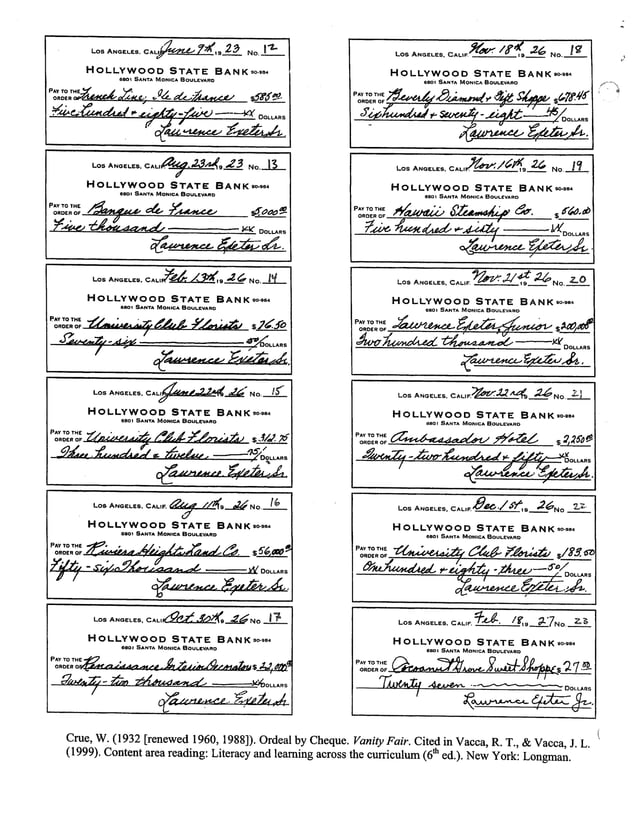 LOS ANGELES, CALIF. June 9th, 1923 No. 12
HOLLYWOOD STATE BANK 90-984
6801 SANTA MONICA BOULEVARD
PAY TO THE ORDER OF French Line, Ile de France $585.00
Five hundred + eighty-five XX DOLLARS
Lawrence Exeter Sr.
LOS ANGELES, CALIF. Aug. 23rd, 1923 No. 13
HOLLYWOOD STATE BANK 90-984
6801 SANTA MONICA BOULEVARD
PAY TO THE ORDER OF Banque de France $5,000.00
Five thousand XX DOLLARS
Lawrence Exeter Sr.
LOS ANGELES, CALIF. Feb. 13th, 1926 No. 14
HOLLYWOOD STATE BANK 90-984
6801 SANTA MONICA BOULEVARD
PAY TO THE ORDER OF University Club Florists $76.50
Seventy-six 50/ DOLLARS
Lawrence Exeter Sr.
LOS ANGELES, CALIF. June 22nd, 1926 No. 15
HOLLYWOOD STATE BANK 90-984
6801 SANTA MONICA BOULEVARD
PAY TO THE ORDER OF University Club Florists $312.75
Three hundred + twelve 75/ DOLLARS
Lawrence Exeter Sr.
LOS ANGELES, CALIF. Aug 11th, 1926 No. 16
HOLLYWOOD STATE BANK 90-984
6801 SANTA MONICA BOULEVARD
PAY TO THE ORDER OF Riviera Heights Land Co. $56,000
Fifty-six Thousand XX DOLLARS
Lawrence Exeter Sr.
LOS ANGELES, CALIF. Oct. 30th, 1926 No. 17
HOLLYWOOD STATE BANK 90-984
6801 SANTA MONICA BOULEVARD
PAY TO THE ORDER OF Renaissance Interior Decorators $22,000
Twenty-two thousand XX DOLLARS
Lawrence Exeter Sr.
LOS ANGELES, CALIF. Nov. 18th, 1926 No. 18
HOLLYWOOD STATE BANK 90-984
6801 SANTA MONICA BOULEVARD
PAY TO THE ORDER OF Beverly Diamond + Gift Shoppe $678.45
Six hundred + seventy-eight 45/ DOLLARS
Lawrence Exeter Sr.
LOS ANGELES, CALIF. Nov. 16th, 1926 No. 19
HOLLYWOOD STATE BANK 90-984
6801 SANTA MONICA BOULEVARD
PAY TO THE ORDER OF Hawaii Steamship Co. $560.00
Five hundred + sixty XX DOLLARS
Lawrence Exeter Sr.
LOS ANGELES, CALIF. Nov. 21st 1926 No. 20
HOLLYWOOD STATE BANK 90-984
6801 SANTA MONICA BOULEVARD
PAY TO THE ORDER OF Lawrence Exeter, Junior $200,000
Two hundred thousand XX DOLLARS
Lawrence Exeter Sr.
LOS ANGELES, CALIF. Nov 22nd, 1926 No. 21
HOLLYWOOD STATE BANK 90-984
6801 SANTA MONICA BOULEVARD
PAY TO THE ORDER OF Ambassador Hotel $2,250.00
Twenty-two hundred + fifty XX DOLLARS
Lawrence Exeter Sr.
LOS ANGELES, CALIF. Dec. 1st 1926 No. 22
HOLLYWOOD STATE BANK 90-984
6801 SANTA MONICA BOULEVARD
PAY TO THE ORDER OF University Club Florists $183.50
One hundred + eighty-three 50/ DOLLARS
Lawrence Exeter Sr.
LOS ANGELES, CALIF. Feb. 18, 1927 No. 23
HOLLYWOOD STATE BANK 90-984
6801 SANTA MONICA BOULEVARD
PAY TO THE ORDER OF Cocoanut Grove Sweet Shoppe $27.00
Twenty seven DOLLARS
Lawrence Exeter Jr.
Crue, W. (1932 [renewed 1960, 1988]). Ordeal by Cheque. Vanity Fair. Cited in Vacca, R. T., & Vacca, J. L.
(1999). Content area reading: Literacy and learning across the curriculum (6th ed.). New York: Longman.